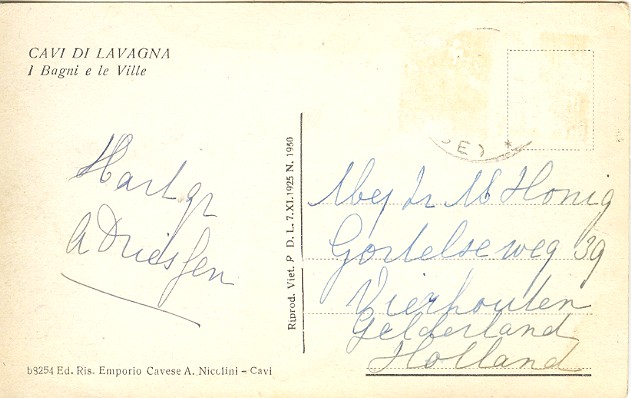 CAVI DI LAVAGNA
I Bagni e le Ville
Hart. gr
A Driessen
Riprod. Viet. P. D. L. 7.XI.1925 N. 1950
GE) *
Mej Jr M Honig
Gortelseweg 39
Vierhouten
Gelderland
Holland
b8254 Ed. Ris. Emporio Cavese A. Nicolini - Cavi